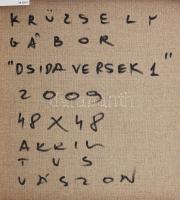 KRÜZSELY
GÁBOR
"DSIDA VERSEK 1"
2009
48 X 48
AKRIL
TUS
VÁSZON